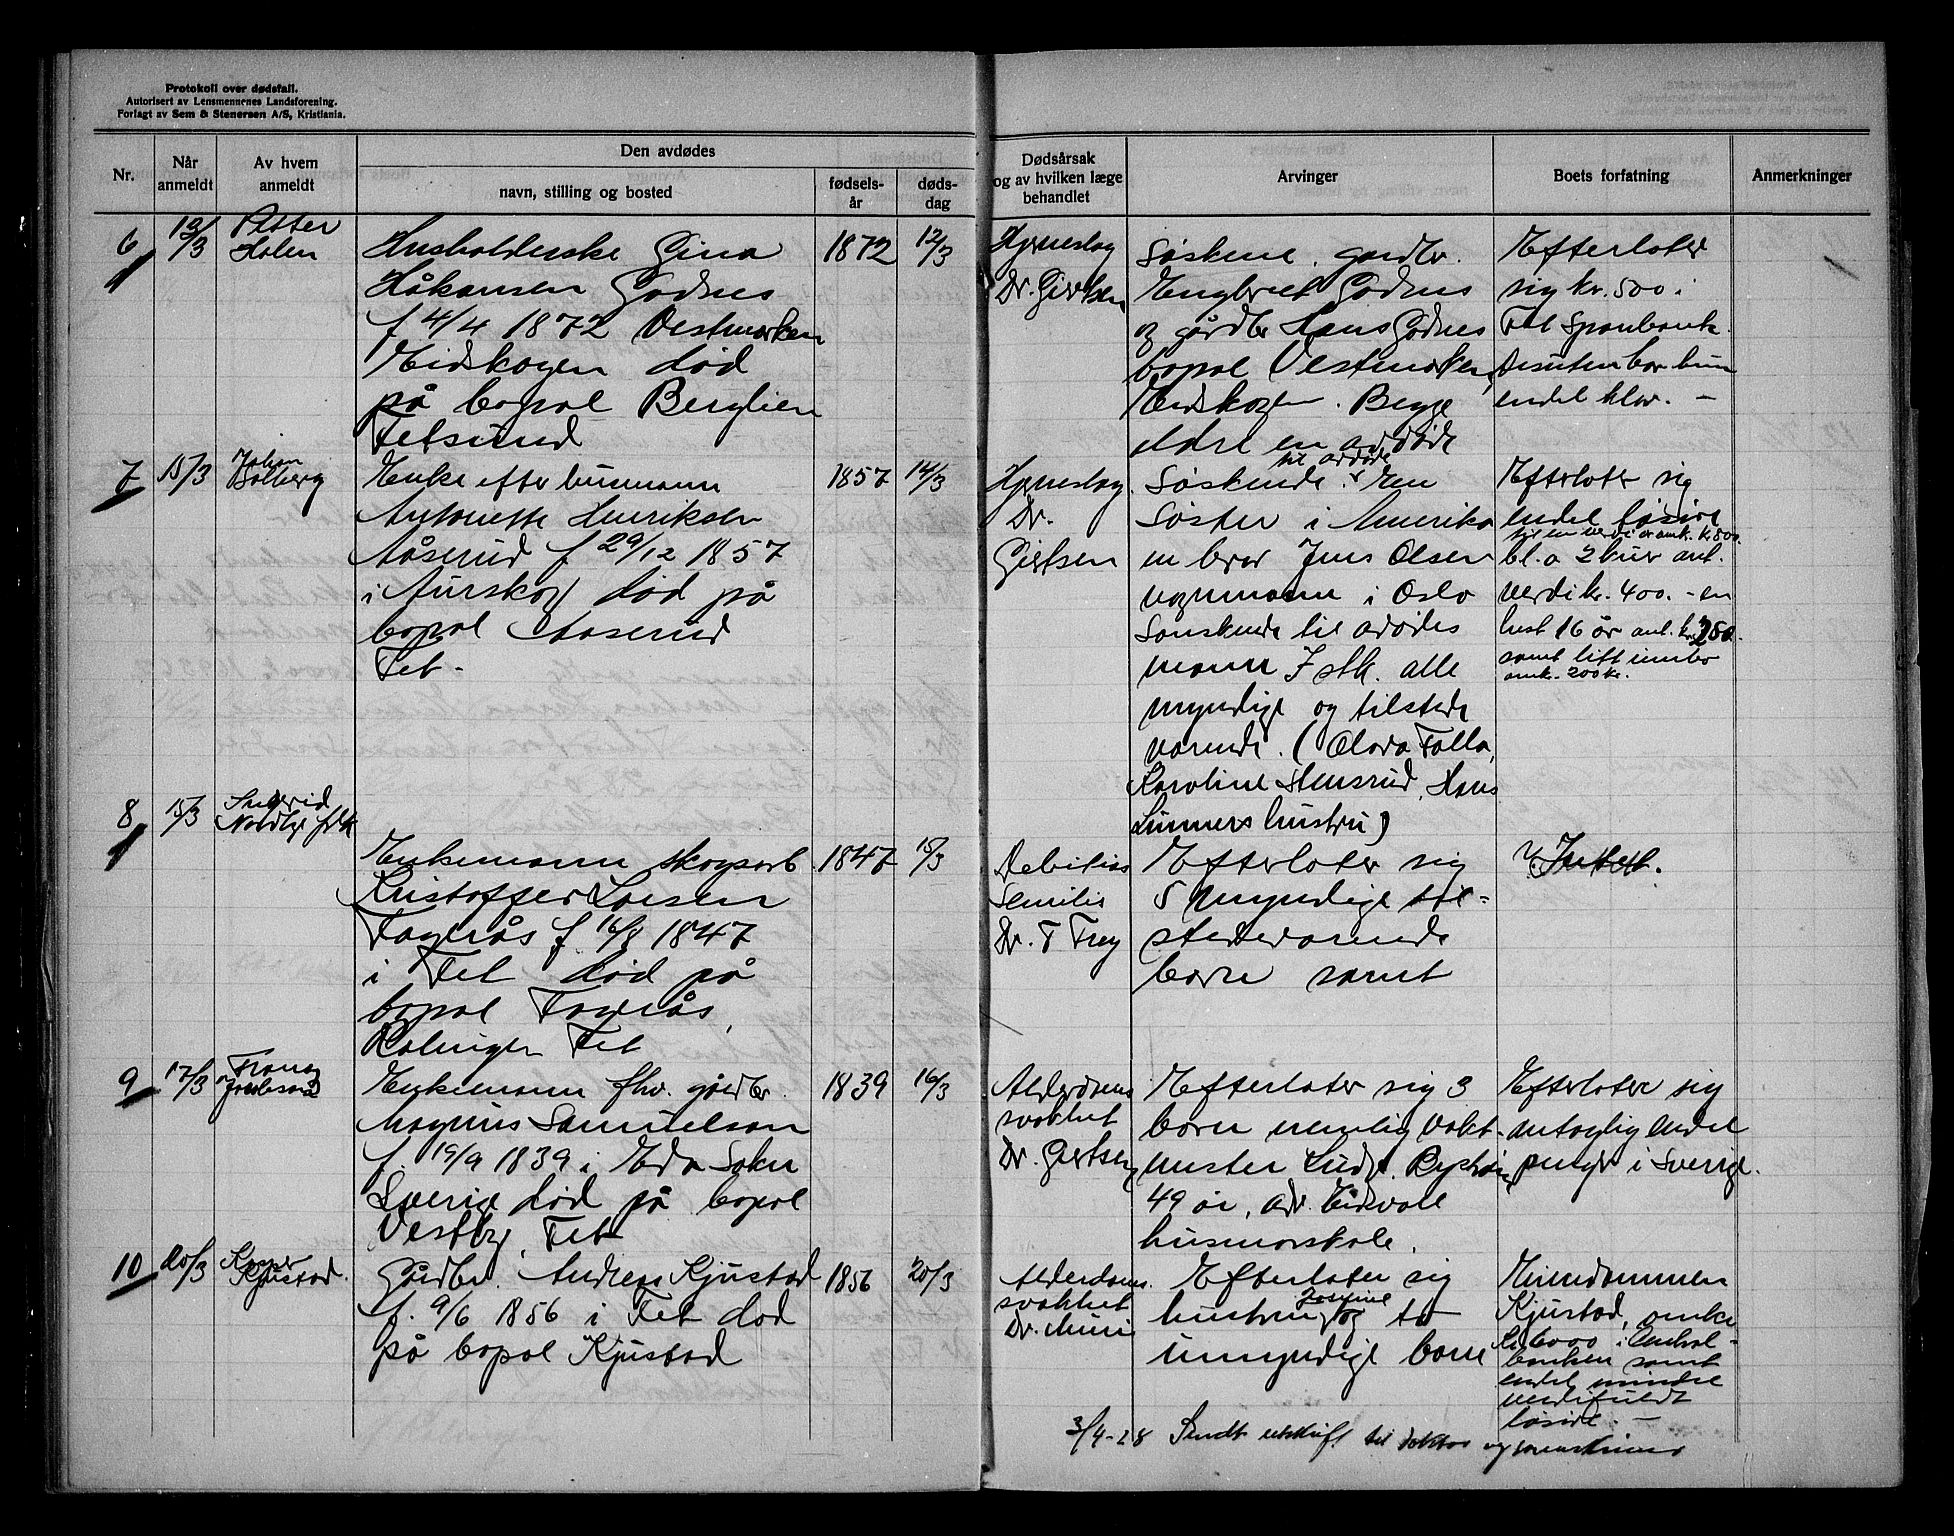 Protokoll over dødsfall.
Autorisert av Lensmennenes Landsforening.
Forlagt av Sem & Stenersen A/S, Kristiania.
Nr.
Når anmeldt
Av hvem anmeldt
Den avdødes
navn, stilling og bosted
fødsels-
år
døds-
dag
Dødsårsak
og av hvilken læge
behandlet
Arvinger
Boets forfatning
Anmerkninger
6
13/3
Petter
Holen
Husholderske Gina
Håkansen Godnes
f 4/4 1872 Vestmarken
Eidskogen død
på bopæl Berglien
Fetsund
1872
12/3
Hjerneslag
Dr. Giertsen
Søskene. gardbr.
Engbret Godnes
og gårdbr Hans Godnes
bopæl Vestmarken,
Eidskogen. Begge
eldre en avdøde
Efterlater
sig kr. 500 i
Fet Sparebank.
Desuten har hun
endel klær. -
7
15/3
Johan
Dalberg
Enke efter husmann
Antonette Henriksen
Aåserud f 29/12 1857
i Aurskog død på
bopæl Aaserud
Fet -
1857
14/3
Hjerneslag.
Dr.
Giertsen
til avdøde
Søskende. En
søster i Amerika
en bror Jens Olsen
vognmann i Oslo
Søskende til avdødes
mann 7 stk. alle
myndige og tilstede
værende. (Olava Falla,
Karoline Stensrud, Hans
Linners hustru)
Efterlater sig
endel løsøre
til en verdi av ank. kr 800.
bl. a 2 kuer ant.
verdi kr. 400. - en
hest 16 år ant. kr. 250.-
samt litt innbo
ank. 200 kr.
8
15/3
Ingerid
Nordby frk
Enkemann skogsarb.
Kristoffer Larsen
Fagerås f 16/8 1847
i Fet død på
bopæl Fagerås,
Rolingen Fet
1847
15/3
Debilitas
Senilis
Dr. T Frey
Efterlater sig
5 myndige til-
stedeværende
barn samt
Intet.
9
17/3
Franz
Jakobsen
Enkemann fhv. gårdbr.
Magnus Samuelson
f 19/9 1839 i Eda Sokn
Sverige død på bopæl
Vestby, Fet
1839
16/3
Alderdoms
svakhet
Dr. Giertsen
Efterlater sig 3
barn nemlig vakt-
mester Ludv.
49 år, adr. Eidsvoll
husmorskole.
Efterlater sig
antagelig endel
penger i Sverige.
10
20/3
Kasper
Kjustad.
Gårdbr. Andreas Kjustad
f. 9/6 1856 i Fet død
på bopæl Kjustad
1856
20/3
Alderdoms.
svakhet
Dr.
Efterlater sig
Josefine
hustru og to
umyndige barn
Eiendommen
Kjustad, omkr
kr. 6000 i Central-
banken samt
endel mindre
verdifuldt
løsøre. -
3/4-28 Sendt utskrift til